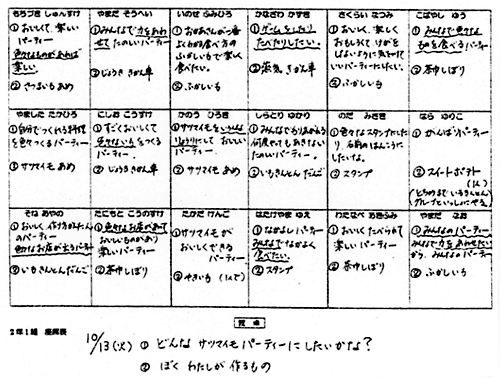 もちづき しゅんすけ
① おいしくて、楽しい
パーティー
色々なものがあれば
楽しい。
② さつまいもあめ
やまだ そうへい
① みんなで力をあわ
せてたのしいパーティー
② じょうききかん車
いのせ ふみひろ
① おかあさんが一番
よくわかる食べ方の
ふかしいもで楽しく
食べたい。
② ふかしいも
かなざわ かずき
① ゲームをしたり
たべたりしたい。
② 蒸気きかん車
さくらい なつみ
① おいしく、楽しく
おもしろくて、けがをし
ないように気をつけて
いいパーティーにしたい。
② ふかしいも
こばやし ゆう
① みんなで色々な
ものを食べるパーティー
② 茶巾しぼり
やました たかひろ
① 自分でつくれる料理
を色々つくるパーティー
② サツマイモあめ
にしお こうすけ
① すごくおいしくて
色々ないもをつくる
パーティー。
② じょうききかん車
かのう ひろき
① サツマイモをいろんな
りょうりにして おいしい
パーティー
② サツマイモあめ
しらとり ゆかり
① みんなでもりあがれる
何度やってもあきない
たのしいパーティー。
② いもきんとんだんご
のだ みさき
① 色々なスタンプにした
り、名前のはんこうにし
たいしたいよ。
② スタンプ
なら ゆりこ
① がんばりパーティー
② スイートポテト
(1人)
そね あやの
① おいしく、作り方がかんたん
のパーティー
色々なお店が出るパーティー
② いもきんとんだんご
たにもと こうのすけ
① 色々なお店があって
おいしいものがあり
楽しいパーティー
② 茶巾しぼり
たかだ けんご
① サツマイモが
おいしくできる
パーティー
② やきいも (1人で)
はたけやま ゆえ
① なかよしパーティー
みんなでなかよく
食べたい。
② スタンプ
わたなべ あきふみ
① おいしくたべられて
楽しいパーティー
② 茶巾しぼり
やまだ なお
① みんなのパーティー
みんなで力をあわせたい
から、みんなのパーティー
② ふかしいも
2年1組 座席表
10/13(火) ① どんな サツマイモ パーティーにしたいかな?
② ぼく わたしが 作るもの